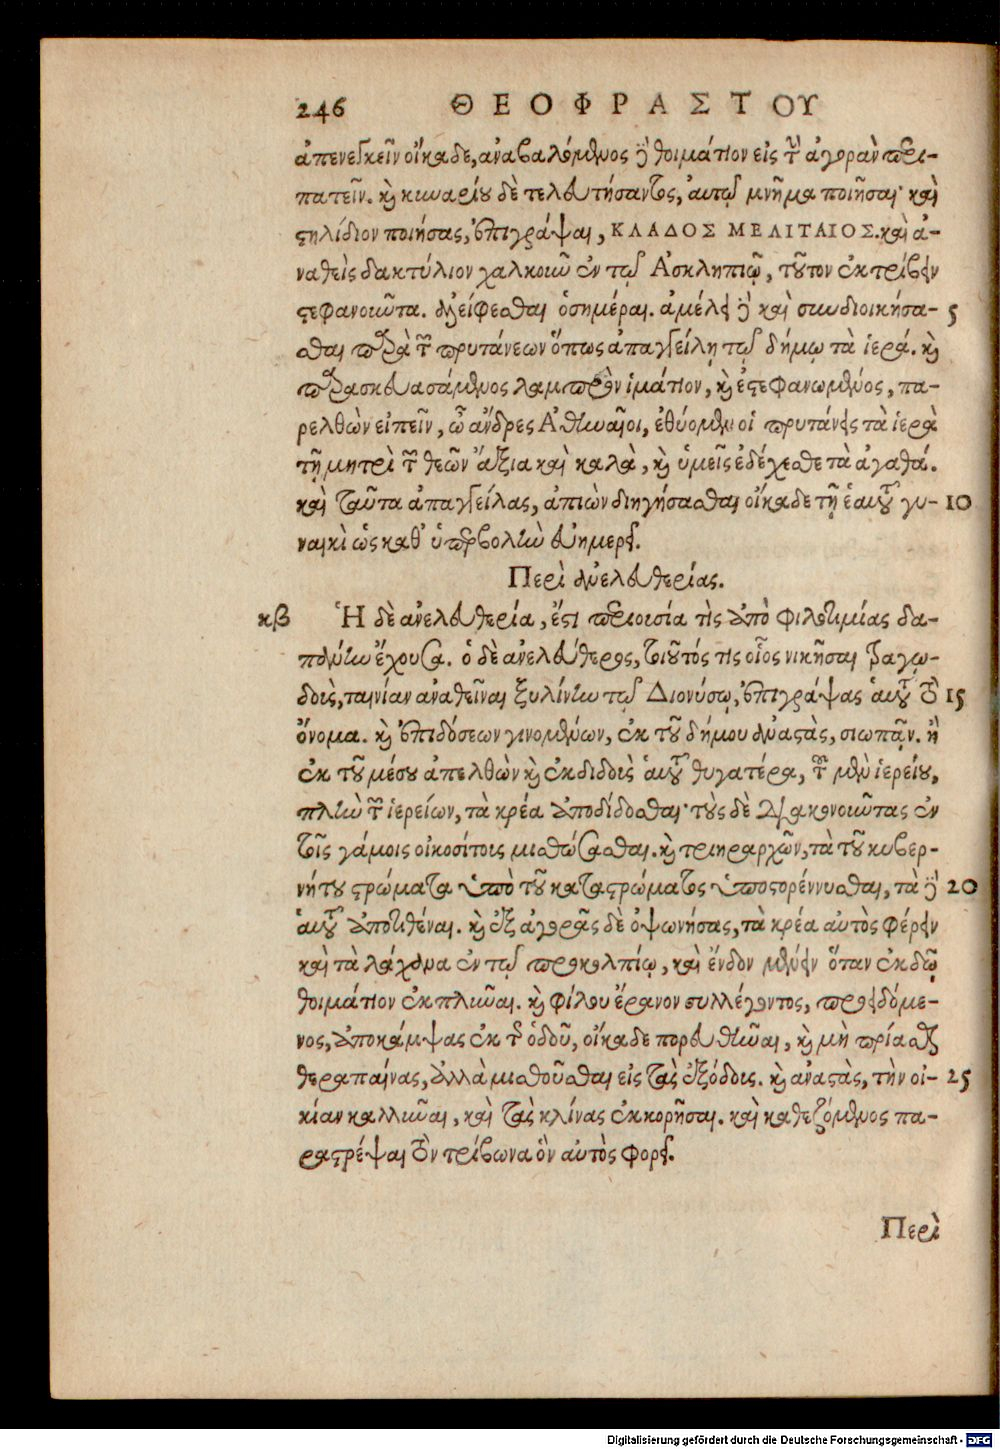 246 ΘΕΟΦΡΑΣΤΟΥ
ἀπενεγκεῖν οἴκαδε, ἀναβαλόμενος δὲ θοιμάτιον εἰς τὴν ἀγορὰν περι-
πατεῖν. καὶ κυναρίου δὲ τελευτήσαντος, αὐτῷ μνῆμα ποιῆσαι· καὶ
στηλίδιον ποιήσας, ἐπιγράψαι, ΚΛΑΔΟΣ ΜΕΛΙΤΑΙΟΣ. καὶ ἀ-
ναθεὶς δακτύλιον χαλκοῦν ἐν τῷ Ἀσκληπιῷ, τοῦτον ἐκτρίβειν
στεφανοῦντα. ἀλείφεσθαι ὁσημέραι. ἀμέλει δὲ καὶ συνδιοικήσα- 5
σθαι παρὰ τῶν πρυτάνεων ὅπως ἀπαγγείλῃ τῷ δήμῳ τὰ ἱερά. καὶ
παρασκευασάμενος λαμπρὸν ἱμάτιον, καὶ ἐστεφανωμένος, πα-
ρελθὼν εἰπεῖν, ὦ ἄνδρες Ἀθηναῖοι, ἐθύομεν οἱ πρυτάνεις τὰ ἱερὰ
τῇ μητρὶ τῶν θεῶν ἄξια καὶ καλὰ, καὶ ὑμεῖς ἐδέχεσθε τὰ ἀγαθά.
καὶ ταῦτα ἀπαγγείλας, ἀπιὼν διηγήσασθαι οἴκαδε τῇ ἑαυτοῦ γυ- 10
ναικὶ ὡς καθ' ὑπερβολὴν εὐημερεῖ.
Περὶ ἀνελευθερίας.
κβ Ἡ δὲ ἀνελευθερία, ἔστι περιουσία τὶς ἀπὸ φιλοτιμίας δα-
πάνην ἔχουσα. ὁ δὲ ἀνελεύθερος, τοιοῦτός τις οἷος νικῆσαι τραγῳ-
δοὺς, ταινίαν ἀναθεῖναι ξυλίνην τῷ Διονύσῳ, ἐπιγράψας αὑτοῦ τὸ 15
ὄνομα. καὶ ἐπιδόσεων γινομένων, ἐκ τοῦ δήμου ἀναστὰς, σιωπᾷν. ἢ
ἐκ τοῦ μέσου ἀπελθὼν καὶ ἐκδιδοὺς αὑτοῦ θυγατέρα, τοῦ μὲν ἱερείου,
πλὴν τῶν ἱερείων, τὰ κρέα ἀποδίδοσθαι· τοὺς δὲ διακονοῦντας ἐν
τοῖς γάμοις οἰκοσίτους μισθώσασθαι. καὶ τριηραρχῶν, τὰ τοῦ κυβερ-
νήτου στρώματα ὑπὸ τοῦ καταστρώματος ὑποστορέννυσθαι, τὰ δὲ 20
αὑτοῦ ἀποτιθέναι. καὶ ἐξ ἀγορᾶς δὲ ὀψωνήσας, τὰ κρέα αὐτὸς φέρειν
καὶ τὰ λάχανα ἐν τῷ προκολπίῳ, καὶ ἔνδον μένειν ὅταν ἐκδῷ
θοιμάτιον ἐκπλῦναι. καὶ φίλου ἔρανον συλλέγοντος, προειδόμε-
νος, ἀποκάμψας ἐκ τῆς ὁδοῦ, οἴκαδε πορευθῆναι, καὶ μὴ πρίασθαι
θεραπαίνας, ἀλλὰ μισθοῦσθαι εἰς τὰς ἐξόδους. καὶ ἀναστὰς, τὴν οἰ- 25
κίαν καλλῦναι, καὶ τὰς κλίνας ἐκκορῆσαι. καὶ καθεζόμενος πα-
ραστρέψαι τὸν τρίβωνα ὃν αὐτὸς φορεῖ.
Περὶ
Digitalisierung gefördert durch die Deutsche Forschungsgemeinschaft - DFG